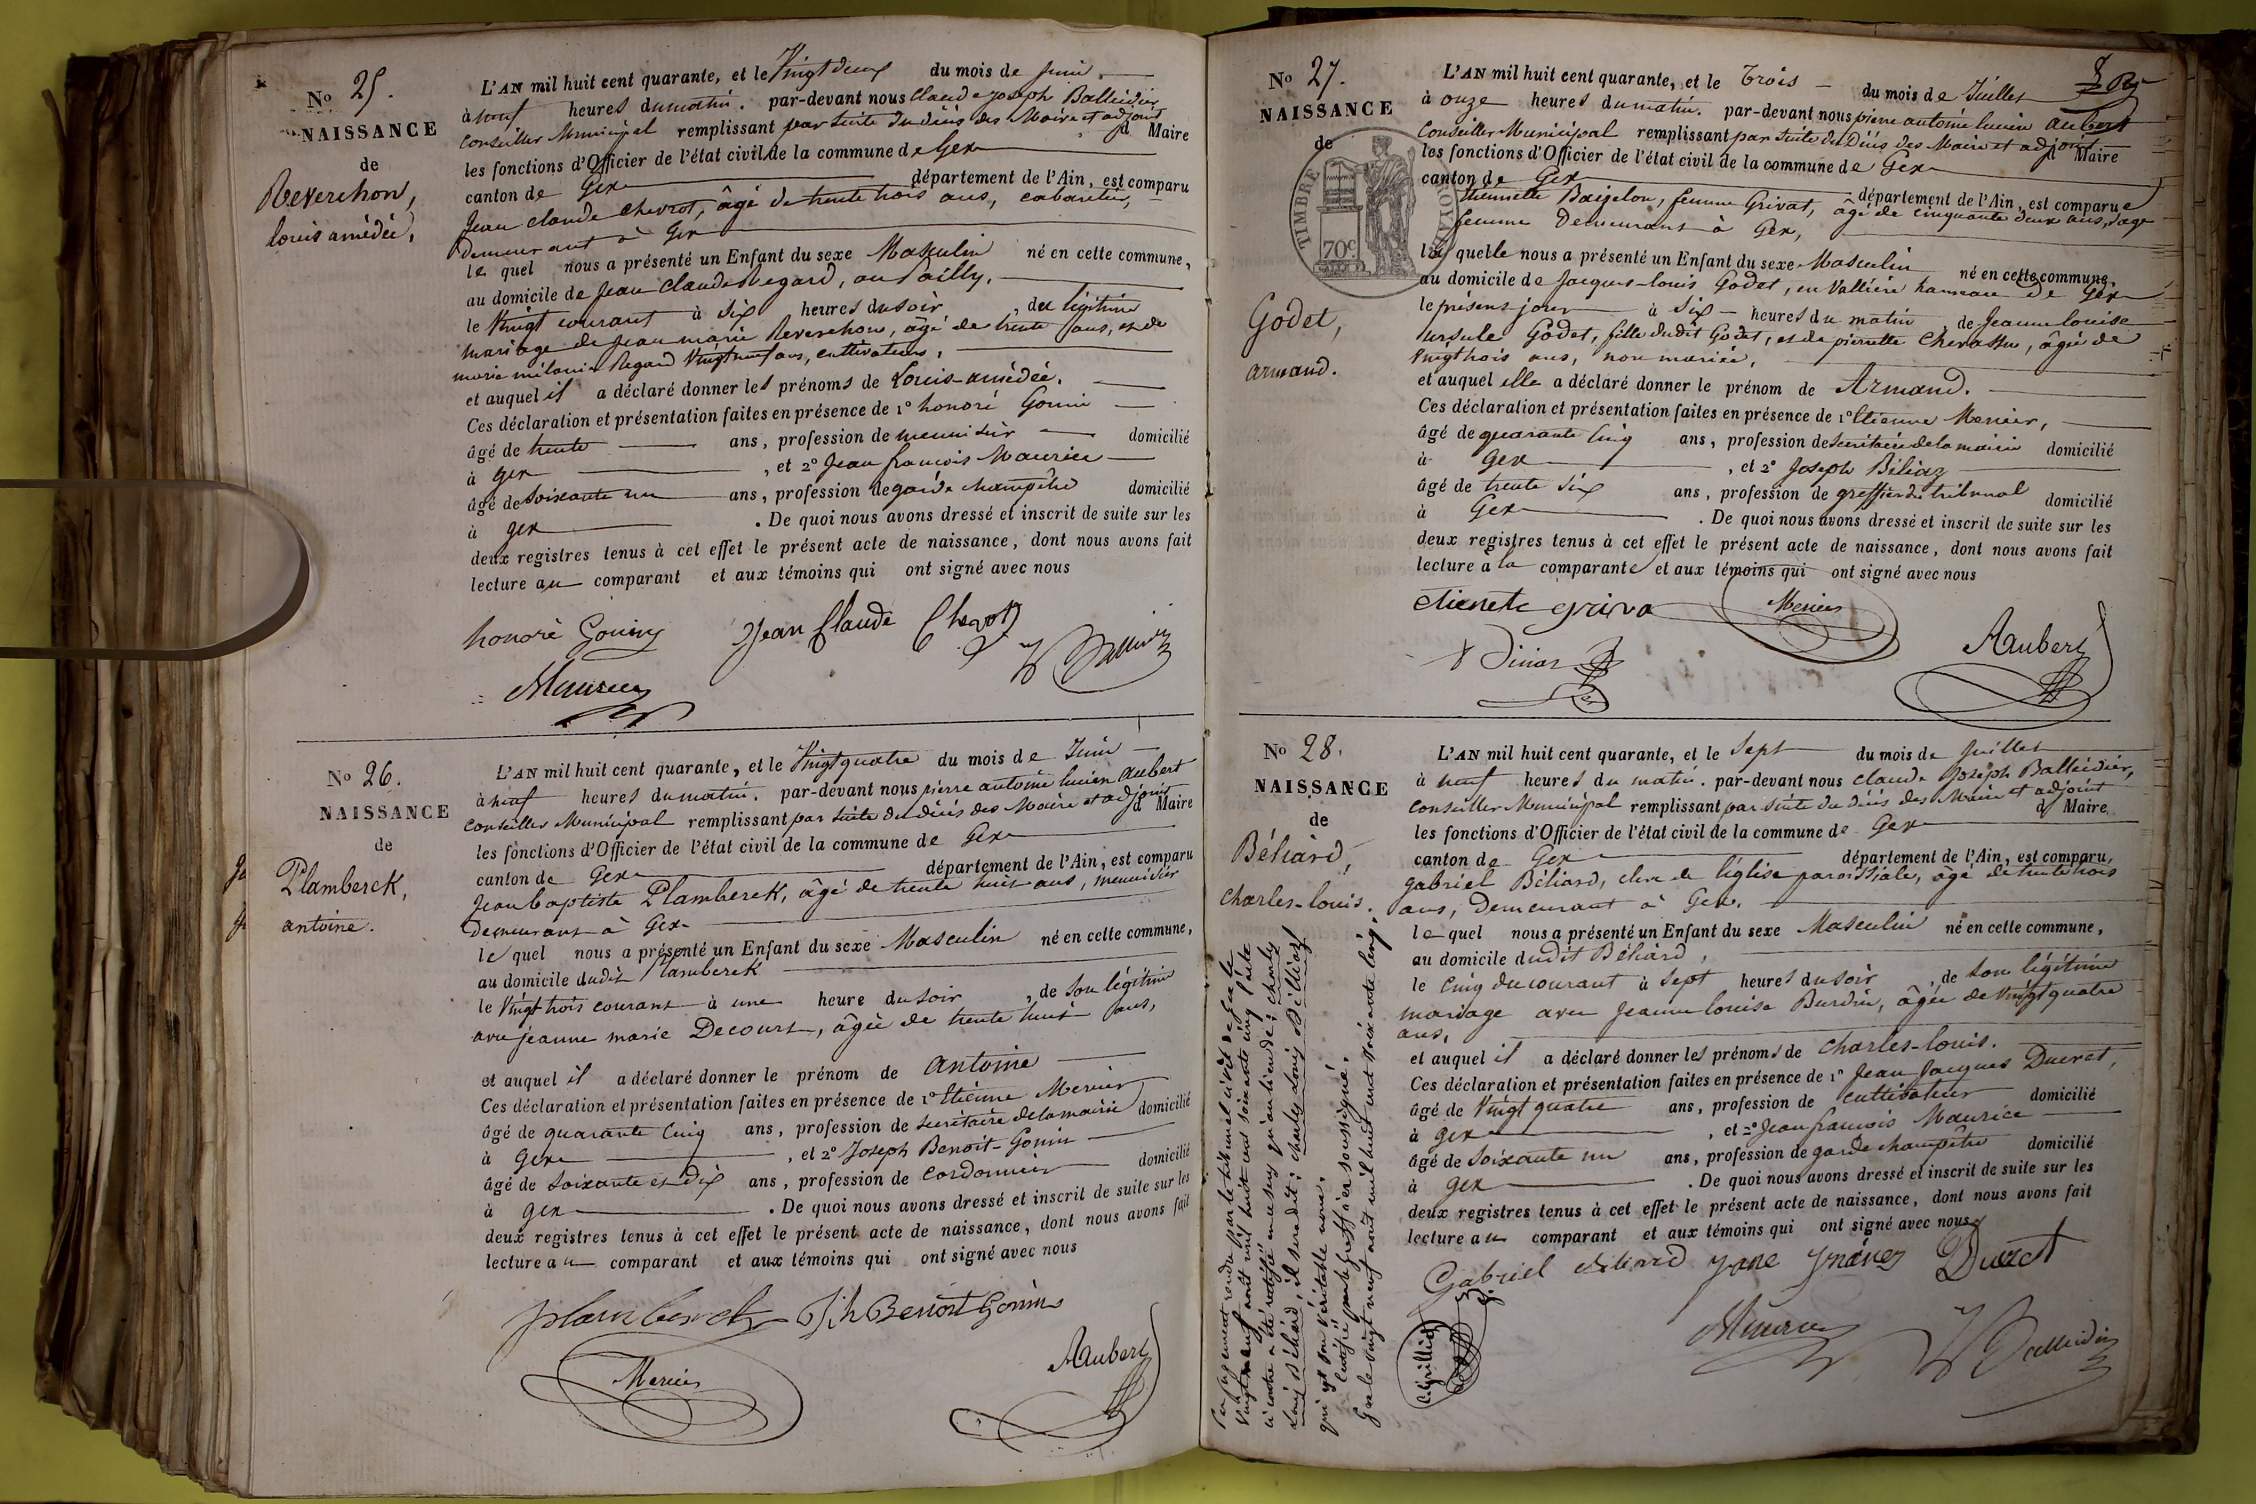 No 25.
NAISSANCE
de
Reverchon,
louis amédée,
L'AN mil huit cent quarante, et le Vingt deux du mois de Juin.
à neuf heures du matin. par-devant nous Claude Joseph Balleidier
Conseiller Municipal remplissant par suite du décès des Maire et adjoint d Maire
les fonctions d'Officier de l'état civil de la commune de Gex
canton de Gex département de l'Ain, est comparu
Jean Claude Chevrot, âgé de trente trois ans, cabaretier,
Demeurant à Gex
le quel nous a présenté un Enfant du sexe Masculin né en cette commune,
au domicile de Jean Claude Regard, au Pailly,
le Vingt courant à Six heures du soir, du légitime
mariage de Jean marie Reverchon, âgé de trente ans, et de
marie mélanie Regard Vingt neuf ans, cultivateurs,
et auquel il a déclaré donner les prénoms de Louis-amédée.
Ces déclaration et présentation faites en présence de 1° honoré Gonin
âgé de trente ans, profession de menuisier domicilié
à gex, et 2° Jean françois Maurice
âgé de Soixante un ans, profession de garde champêtre domicilié
à gex. De quoi nous avons dressé et inscrit de suite sur les
deux registres tenus à cet effet le présent acte de naissance, dont nous avons fait
lecture au comparant et aux témoins qui ont signé avec nous
honoré Gonin Jean Claude Chevrot Balleidier
Maurice
No 26.
NAISSANCE
de
Plamberck,
antoine.
L'AN mil huit cent quarante, et le Vingt quatre du mois de Juin
à neuf heures du matin. par-devant nous pierre antoine lucien Aubert
Conseiller Municipal remplissant par suite du décès des Maire et adjoint d Maire
les fonctions d'Officier de l'état civil de la commune de Gex
canton de Gex département de l'Ain, est comparu
Jean baptiste Plamberck, âgé de trente huit ans, menuisier
Demeurant à Gex
le quel nous a présenté un Enfant du sexe Masculin né en cette commune,
au domicile dudit Plamberck
le Vingt trois courant à une heure du soir, de Son légitime
avec jeanne marie Decourt, âgée de trente huit ans,
et auquel il a déclaré donner le prénom de antoine
Ces déclaration et présentation faites en présence de 1° Etienne Mercier
âgé de quarante cinq ans, profession de secrétaire de la mairie domicilié
à Gex, et 2° Joseph Benoit-Gonin
âgé de Soixante et Dix ans, profession de cordonnier domicilié
à gex. De quoi nous avons dressé et inscrit de suite sur les
deux registres tenus à cet effet le présent acte de naissance, dont nous avons fait
lecture au comparant et aux témoins qui ont signé avec nous
plamberck Jh Benoit Gonin
Mercier Aubert
No 27.
NAISSANCE
de
TIMBRE ROYAL
70 c.
Godet,
armand.
L'AN mil huit cent quarante, et le Trois du mois de Juillet
à onze heures du matin. par-devant nous pierre antoine lucien aubert
Conseiller Municipal remplissant par suite du Décès des Maire et adjoint d Maire
les fonctions d'Officier de l'état civil de la commune de Gex
canton de Gex département de l'Ain, est comparue
Etiennette Baigelon, femme Grivat, âgée de cinquante deux ans, sage
femme Demeurant à Gex,
la quelle nous a présenté un Enfant du sexe Masculin né en cette commune,
au domicile de Jacques-louis Godet, en Vallière hameau de Gex
le présent jour à Six heures du matin, de Jeanne louise
ursule Godet, fille dudit Godet, et de pierrette Chevassu, âgée de
Vingt trois ans, non mariée,
et auquel elle a déclaré donner le prénom de Armand.
Ces déclaration et présentation faites en présence de 1° Etienne Mercier,
âgé de quarante Cinq ans, profession de secrétaire de la mairie domicilié
à Gex, et 2° Joseph Béliaz
âgé de trente Six ans, profession de greffier du tribunal domicilié
à Gex. De quoi nous avons dressé et inscrit de suite sur les
deux registres tenus à cet effet le présent acte de naissance, dont nous avons fait
lecture a la comparante et aux témoins qui ont signé avec nous
etienete griva Mercier
Aubert
No 28.
NAISSANCE
de
Béliard,
Charles-louis.
L'AN mil huit cent quarante, et le Sept du mois de Juillet
à neuf heures du matin. par-devant nous Claude Joseph Balleidier,
Conseiller Municipal remplissant par suite du décès des Maire et adjoint d Maire
les fonctions d'Officier de l'état civil de la commune de Gex
canton de Gex département de l'Ain, est comparu,
gabriel Béliard, clerc de l'église paroissiale, âgé de trente trois
ans, Demeurant à Gex.
le quel nous a présenté un Enfant du sexe Masculin né en cette commune,
au domicile dudit Béliard,
le Cinq du courant à Sept heures du soir, de Son légitime
mariage avec Jeanne louise Burdin, âgée de Vingt quatre
ans,
et auquel il a déclaré donner les prénoms de Charles-louis.
Ces déclaration et présentation faites en présence de 1° Jean Jacques Ducret,
âgé de Vingt quatre ans, profession de cultivateur domicilié
à gex, et 2° Jean francois Maurice
âgé de Soixante un ans, profession de garde champêtre domicilié
à gex. De quoi nous avons dressé et inscrit de suite sur les
deux registres tenus à cet effet le présent acte de naissance, dont nous avons fait
lecture au comparant et aux témoins qui ont signé avec nous
Gabriel Béliard Ducret
Maurice Balleidier
Par jugement rendu par le tribunal civil de Gex le
Vingt neuf août mil huit cent soixante cinq l'acte
ci contre a été rectifié en ce sens qu'au lieu de: charles
Louis Béliard, il sera dit: charles Louis Billiard
qui est son véritable nom.
Certifié par le greffier soussigné.
Gex le vingt neuf août mil huit cent soixante cinq.